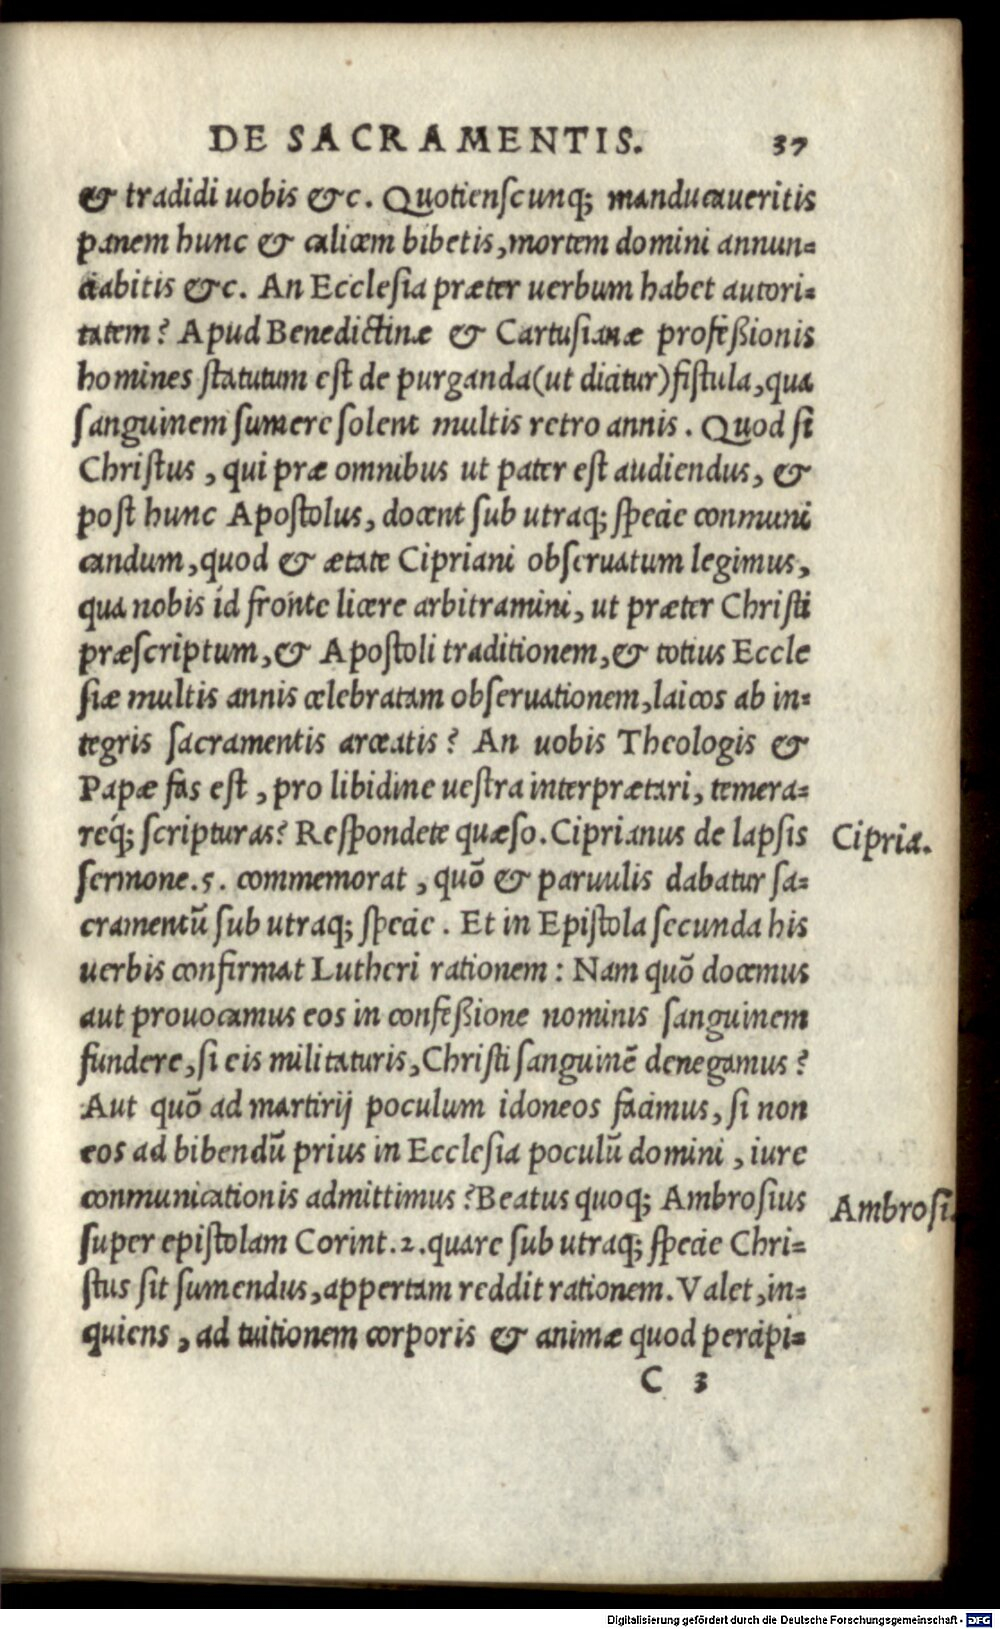 DE SACRAMENTIS. 37
& tradidi uobis &c. Quotienſcunq; manducaueritis
panem hunc & calicem bibetis, mortem domini annun=
ciabitis &c. An Eccleſia præter uerbum habet autori=
tatem? Apud Benedictinæ & Cartuſianæ profeßionis
homines ſtatutum eſt de purganda (ut dicitur) fiſtula, qua
ſanguinem ſumere ſolent multis retro annis. Quod ſi
Chriſtus, qui præ omnibus ut pater eſt audiendus, &
poſt hunc Apoſtolus, docent ſub utraq; ſpecie conmuni
candum, quod & ætate Cipriani obſeruatum legimus,
qua nobis id fronte licere arbitramini, ut præter Chriſti
præſcriptum, & Apoſtoli traditionem, & totius Eccle
ſiæ multis annis celebratam obſeruationem, laicos ab in=
tegris ſacramentis arceatis? An uobis Theologis &
Papæ fas eſt, pro libidine ueſtra interprætari, temera=
req́; ſcripturas? Reſpondete quæſo. Ciprianus de lapſis
Cipria.
ſermone. 5. commemorat, quō & paruulis dabatur ſa=
cramentū ſub utraq; ſpecie. Et in Epiſtola ſecunda his
uerbis confirmat Lutheri rationem: Nam quō docemus
aut prouocamus eos in confeßione nominis ſanguinem
fundere, ſi eis militaturis, Chriſti ſanguinē denegamus?
Aut quō ad martirij poculum idoneos facimus, ſi non
eos ad bibendū prius in Eccleſia poculū domini, iure
conmunicationis admittimus? Beatus quoq; Ambroſius
Ambroſi.
ſuper epiſtolam Corint. 2. quare ſub utraq; ſpecie Chri=
ſtus ſit ſumendus, appertam reddit rationem. Valet, in=
quiens, ad tuitionem corporis & animæ quod percipi=
C 3
Digitalisierung gefördert durch die Deutsche Forschungsgemeinschaft - DFG